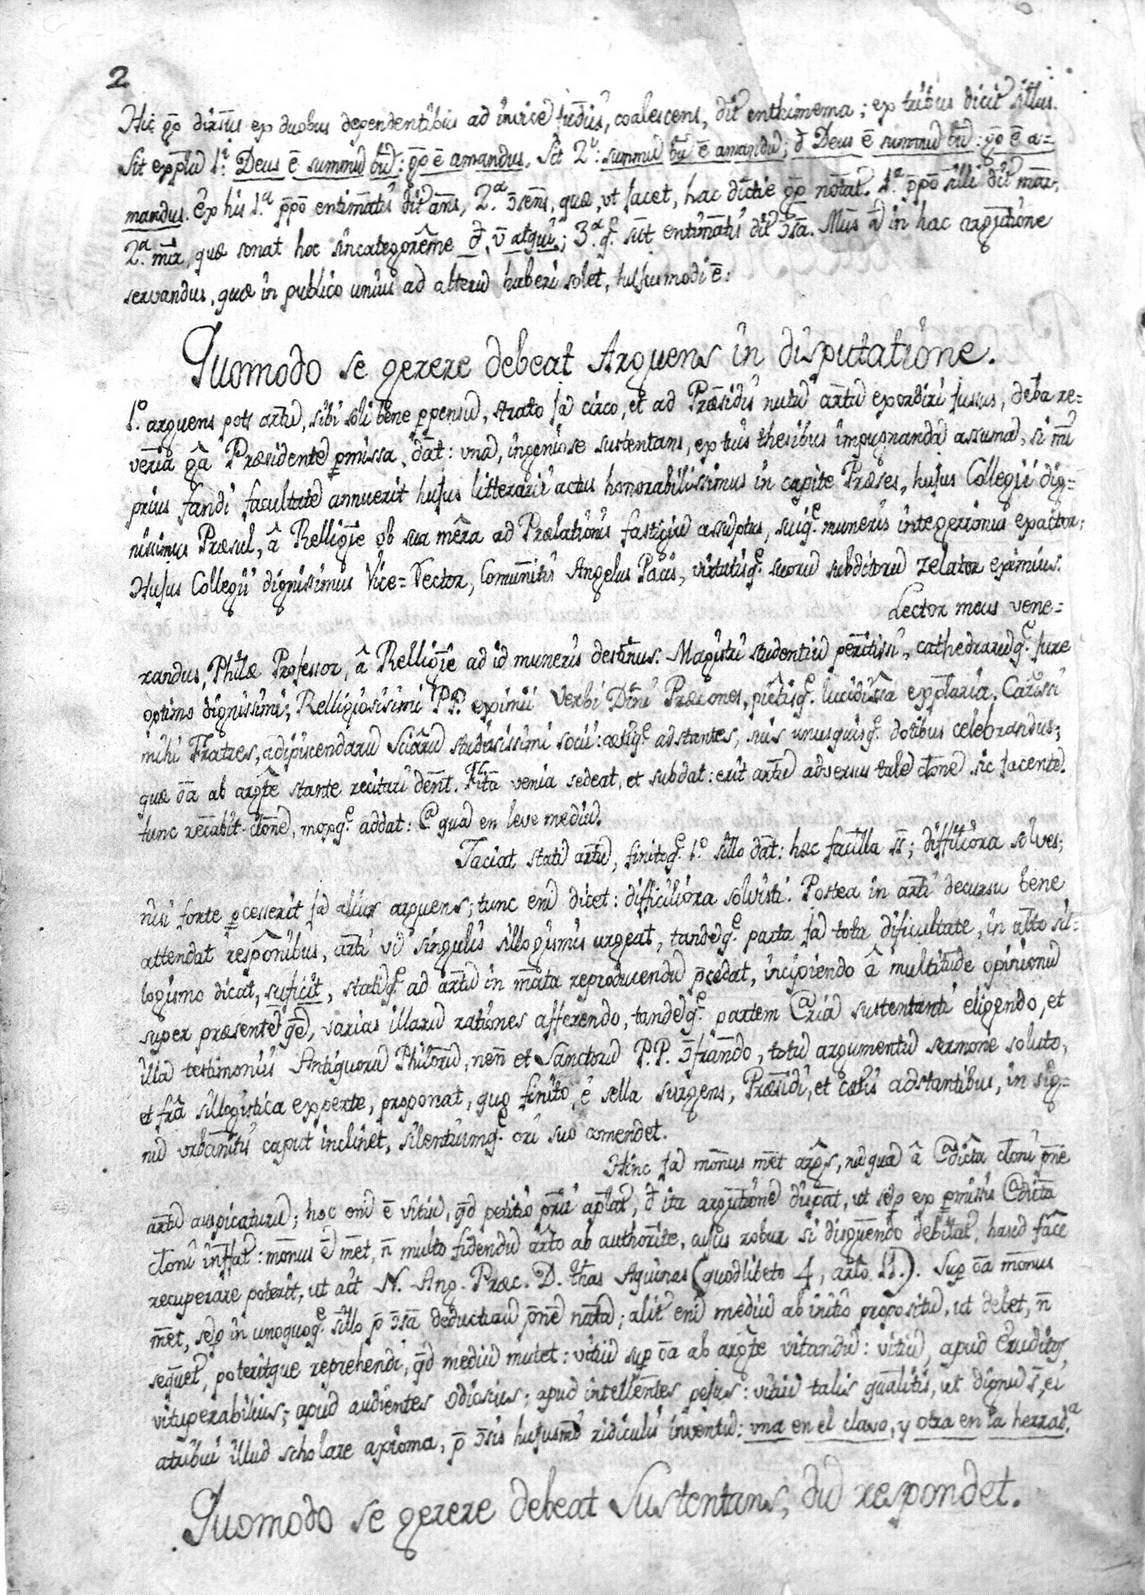 2
Hic g̅o disr̅sus ex duobus dependentibus ad invice̅ tridiu̅s, coalescens, dit̅ enthimema; ex tribus dicit̅ sillus.
Sit exp̅lu̅ 1.º Deus e̅ summu̅ bu̅: g̅o e̅ amandus. Sit 2.º: summu̅ bu̅ e̅ amandu̅; d̅ Deus e̅ summu̅ bu̅: g̅o e̅ a=
mandus. Ex his 1.ª p̅p̅o entim̅atis dit̅ an̅s, 2.ª ɔ̅sen̅s, quæ, ut jacet, hac dictie g̅o notat̅. 1.ª p̅p̅o silli dit̅ mar,
2.ª mi̅r, quæ sonat hoc sincategorême d̅, v̅ atqui; 3.ª q̅ sic̅ut entim̅atis dit̅ ɔ̅sa̅. Mu̅s v̅ in hac argu̅tione
servandus, quæ in publico unius ad alteru̅ haberi solet, hujusmodi e̅:
Quomodo se gerere debeat Arguens in disputatione.
1.º arguens pots art̅u̅, sibi soli bene p̅pensu̅, strato ja̅ circo, et ad Præsidis nutu̅ art̅u̅ exordiri jussus, debita re=
veria g̅a Præsidente̅ p̅missa, da̅t: una̅, ingeniose sustentans, ex tuis thesibus impugnanda̅ assuma̅, si mi̅
prius fandi facultate̅ annuerit hujus litterarii actus honorabilissimus in capite Præses, hujus Collegii dig=
nissimus Præsul, â Relligi̅e ob sua me̅ra ad Prælationis fastigiu̅ assu̅ptus, suiq.̅ muneris integerrimus exactor;
Hujus Collegii dignissimus Vice=Rector, Comuni̅tis Angelus Pacis, virtutisq.̅ suoru̅ subditoru̅ zelator eximius:
Lector meus vene=
randus, Philæ Professor, â Relligi̅e ad id muneris desti̅nus. Magistri studentiu̅ peritissi̅, cathedraru̅q.̅ jure
optimo dignissimi; Relligiosissimi P.P. eximii Verbi Di̅ni Præcones, pietisq.̅ lucidissa̅ exp̅laria, Carissi̅
mihi Fratres, adipiscendaru̅ Scia̅ru̅ studiosissimi socii: cæt̅iq.̅ adstantes, suis unusquisq.̅ dotibus celebrandus;
quæ o̅a ab arg̅te stante recitari de̅nt. Fi̅ta venia sedeat, et subdat: erit art̅u̅ adversus tale̅ clone̅ sic jacente̅.
tunc recabit clone̅, moxq.̅ addat: @ qua̅ en leve mediu̅.
Jaciat stati̅ art̅u̅, finitoq.̅ 1.º sillo da̅t: hæc facilla s̅t; difficiliora solves;
nisi forte p̅cesserit ja̅ alius arguens; tunc eni̅ dicet: difficiliora solvisti. Postea in arti̅ decursu bene
attendat respo̅nibus, arti̅ vi̅ singulis sillogismis urgeat, tande̅q.̅ parta ja̅ tota dificultate, in alt̅o sil=
logismo dicat, suficit, stati̅q.̅ ad art̅u̅ in ma̅ta reproducendu̅ p̅cedat, incipiendo â multitu̅de opinionu̅
super præsente̅ q̅e̅, varias illaru̅ rationes afferendo, tande̅q.̅ partem @ria̅ sustentanti eligendo, et
illa̅ testimoniis Antiquoru̅ Philoru̅, nen̅ et Sanctoru̅ P.P. ɔ̅fra̅ndo, totu̅ argumentu̅ sermone soluto,
et fr̅a sillogistica experte, proponat, quo finito, e sella surgens, Præsidi, et cæt̅is adstantibus, in sig=
nu̅ urbani̅tis caput inclinet, silentiumq.̅ ori suo comendet.
Hinc ja̅ mon̅us m̅et arg̅s, nu̅qua̅ â @dicta cloni̅ o̅ne
art̅u̅ auspicaturu̅; hoc eni̅ e̅ vitiu̅, q̅d petitio p̅rii ap̅lat̅, d̅ ita argu̅tione̅ disp̅at, ut se̅p ex p̅missis @dicta̅
cloni inf̅fat̅: mon̅us e̅ m̅et, n̅ multo fidendu̅ art̅o ab authorite, cujus robur si disg̅uendo debitat̅, haud fac̅e
recuperare poterit, ut ait N. Ang. Præc. D. Th̅as Aquinas (quodlibeto 4, art̅o 11.). Sup̅ o̅a mo̅nus
m̅et, se̅p in unoquoq.̅ sillo p̅ ɔ̅sa̅ deductiau̅, o̅ne̅ nata̅; alit̅ eni̅ mediu̅ ab initio propositu̅, ut debet, n̅
seq̅uet̅, poteritque reprehendi, q̅d mediu̅ mutet: vitiu̅ sup̅ o̅a ab arg̅te vitandu̅: vitiu̅, apud Eruditos,
vituperabilius; apud audientes odiosius; apud intellen̅tes pejus: vitiu̅ talis q̅ualitis, ut dignu̅ s̅t, ei
atribui illud scholare axioma, p̅ ɔ̅sis hujusmo̅d ridiculis inventu̅: una en el clavo, y otra en la herrad.ª
Quomodo se gerere debeat Sustentans, du̅ respondet.